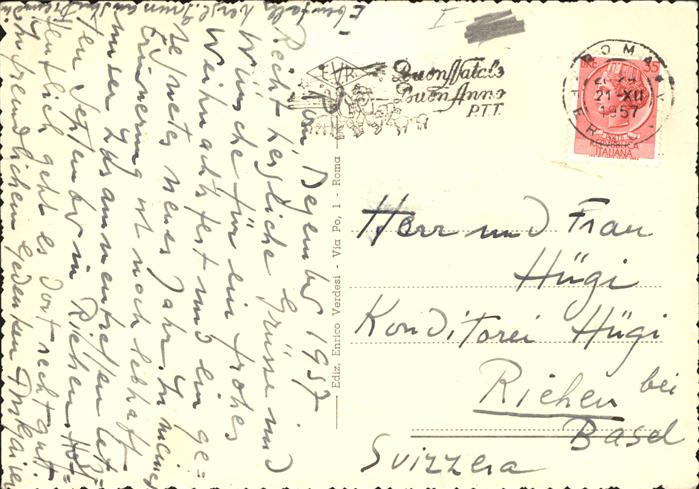 Rom, Dezember 1957
Recht herzliche Grüsse und
Wünsche für ein frohes
Weihnachtsfest und ein ge=
segnetes neues Jahr. In meiner
Erinnerung ist noch lebhaft
unser Zusammentreffen letz=
ten September in Riehen. Hof=
fentlich geht es Dort recht gut.
In freundlichem Gedenken
Ebenfalls herzl.
I-
Buon Natale
Buon Anno
P.T.T.
ROMA
21-XII
1957
35
REPUBBLICA
ITALIANA
Ediz. Enrico Verdesi - Via Po, 1 - Roma
Herr und Frau
Hügi
Konditorei Hügi
Riehen bei
Basel
Svizzera